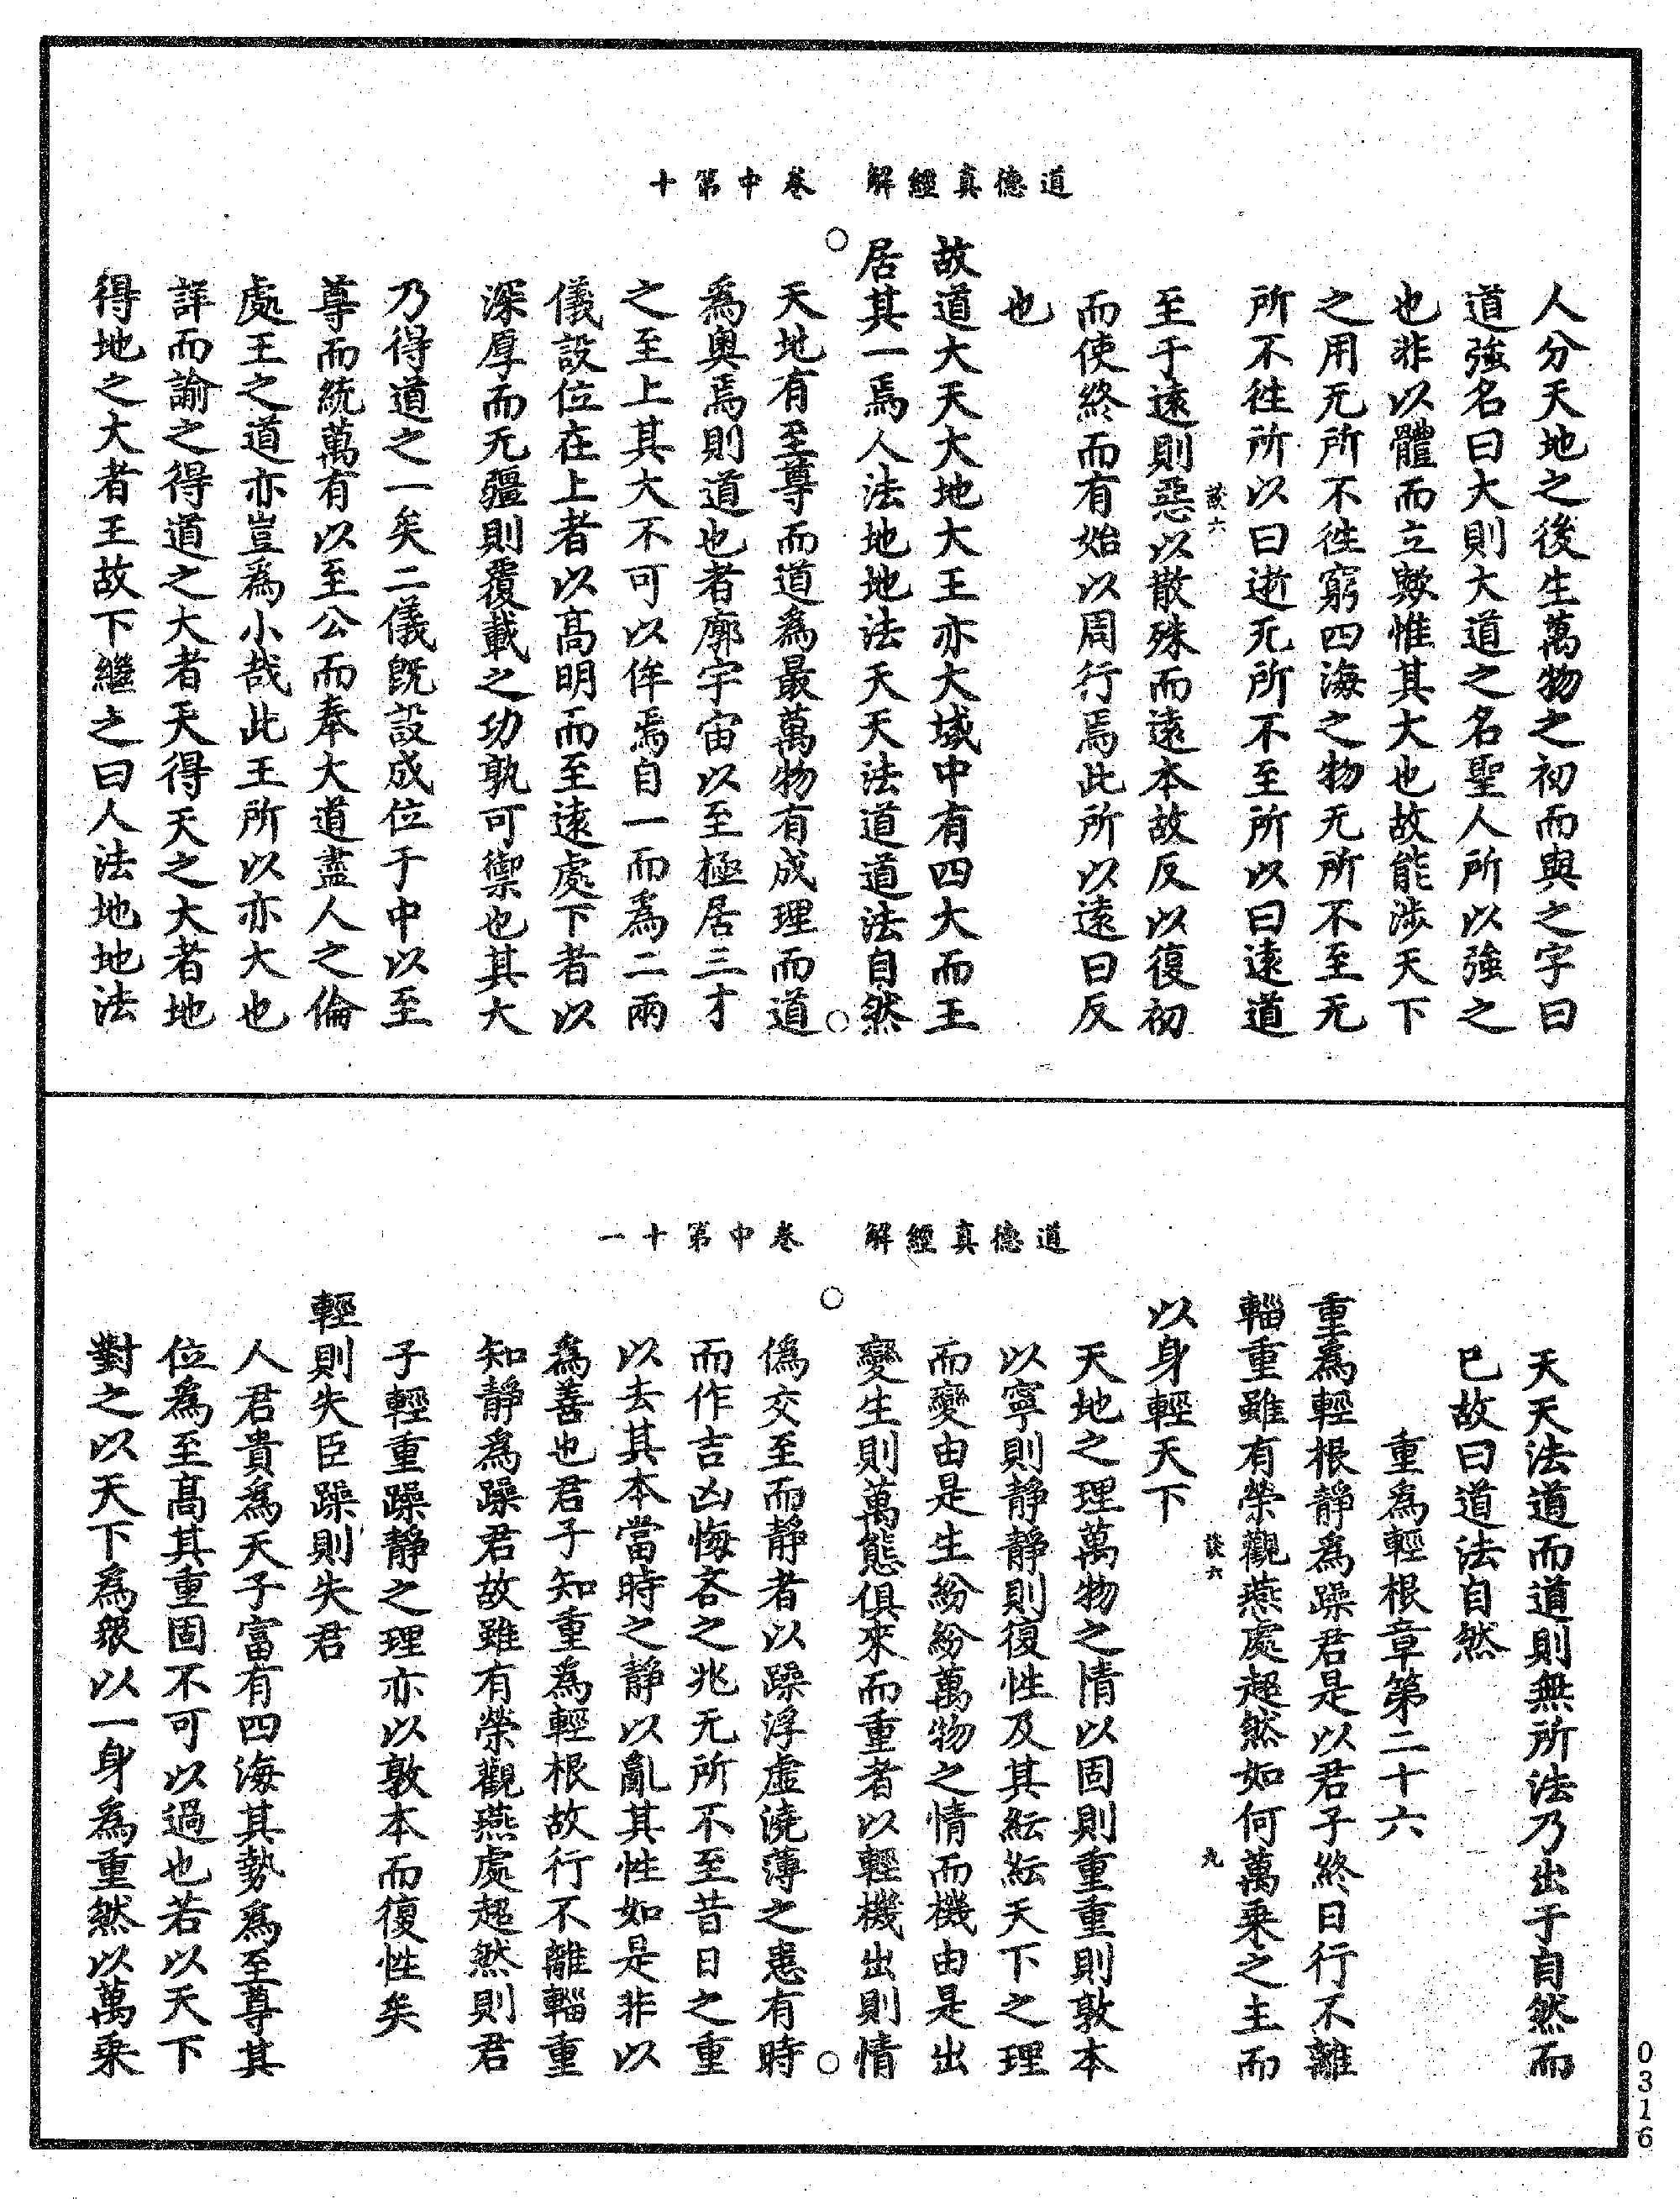 道德真經解　卷中第十
人分天地之後生萬物之初而與之字曰
道強名曰大則大道之名聖人所以強之
也非以體而立歟惟其大也故能涉天下
之用无所不徃窮四海之物无所不至无
所不徃所以曰逝无所不至所以曰遠道
談六
至于遠則惡以散殊而遠本故反以復初
而使終而有始以周行焉此所以遠曰反
也
故道大天大地大王亦大域中有四大而王
居其一焉人法地地法天天法道道法自然
天地有至尊而道為最萬物有成理而道
為奧焉則道也者廓宇宙以至極居三才
之至上其大不可以侔焉自一而為二兩
儀設位在上者以高明而至遠處下者以
深厚而无疆則覆載之功孰可禦也其大
乃得道之一矣二儀旣設成位于中以至
尊而統萬有以至公而奉大道盡人之倫
處王之道亦豈為小哉此王所以亦大也
詳而諭之得道之大者天得天之大者地
得地之大者王故下繼之曰人法地地法
道德真經解　卷中第十一
天天法道而道則無所法乃出于自然而
已故曰道法自然
重為輕根章第二十六
重為輕根靜為躁君是以君子終日行不離
輜重雖有榮觀燕處超然如何萬乘之主而
談六　九
以身輕天下
天地之理萬物之情以固則重重則敦本
以寧則靜靜則復性及其紜紜天下之理
而變由是生紛紛萬物之情而機由是出
變生則萬態俱來而重者以輕機出則情
偽交至而靜者以躁浮虛澆薄之患有時
而作吉凶悔吝之兆无所不至昔日之重
以去其本當時之靜以亂其性如是非以
為善也君子知重為輕根故行不離輜重
知靜為躁君故雖有榮觀燕處超然則君
子輕重躁靜之理亦以敦本而復性矣
輕則失臣躁則失君
人君貴為天子富有四海其勢為至尊其
位為至高其重固不可以過也若以天下
對之以天下為衆以一身為重然以萬乘
0316